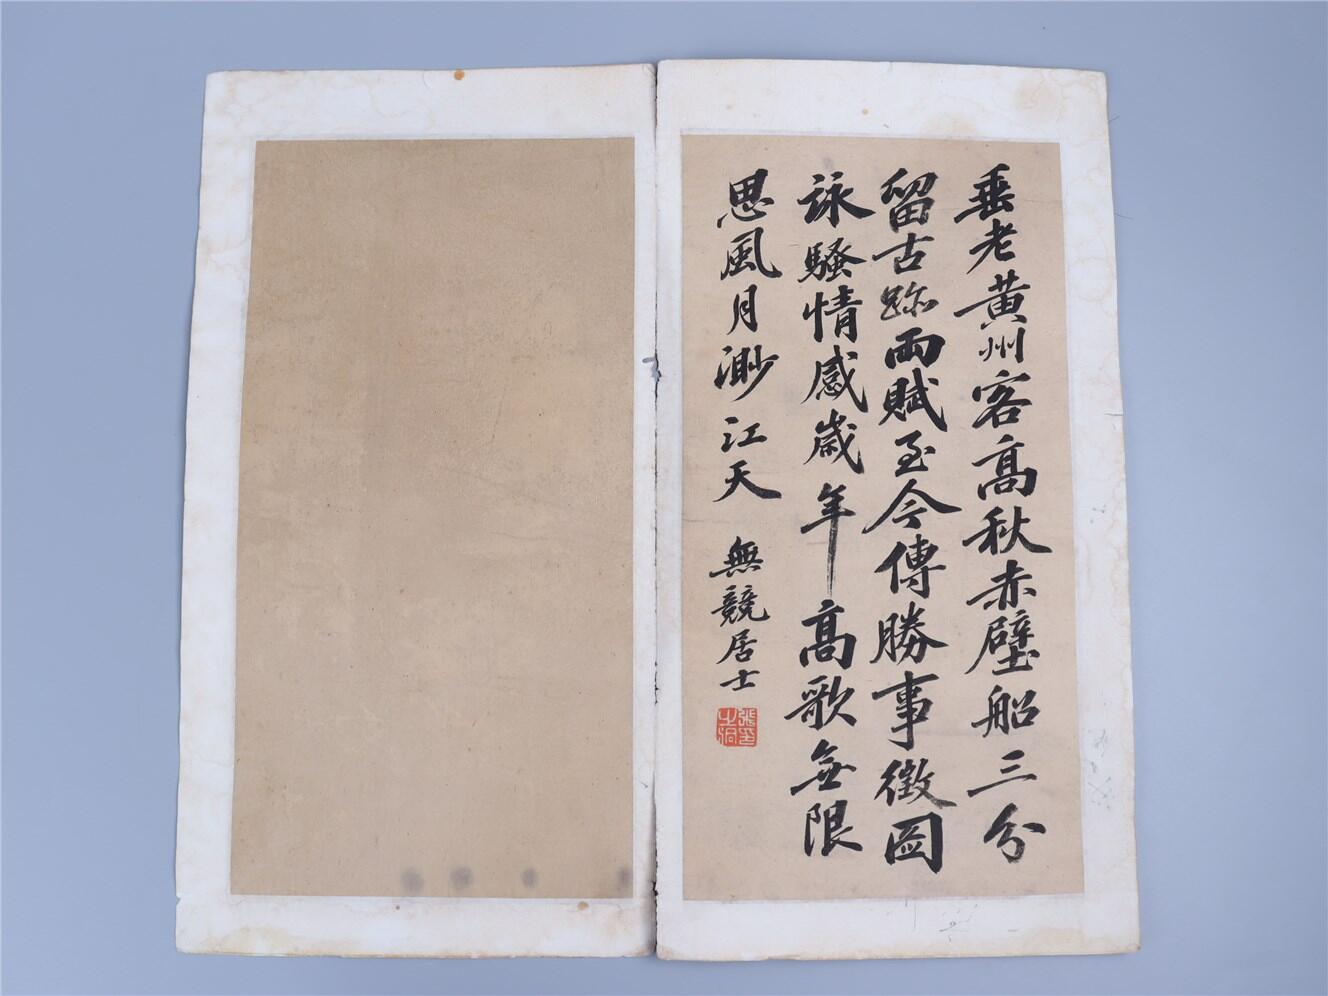 垂老黄州客高秋赤壁船三分
留古跡兩賦至今傳勝事徵圖
詠騷情感歲年高歌無限
思風月渺江天
無競居士
張之洞印